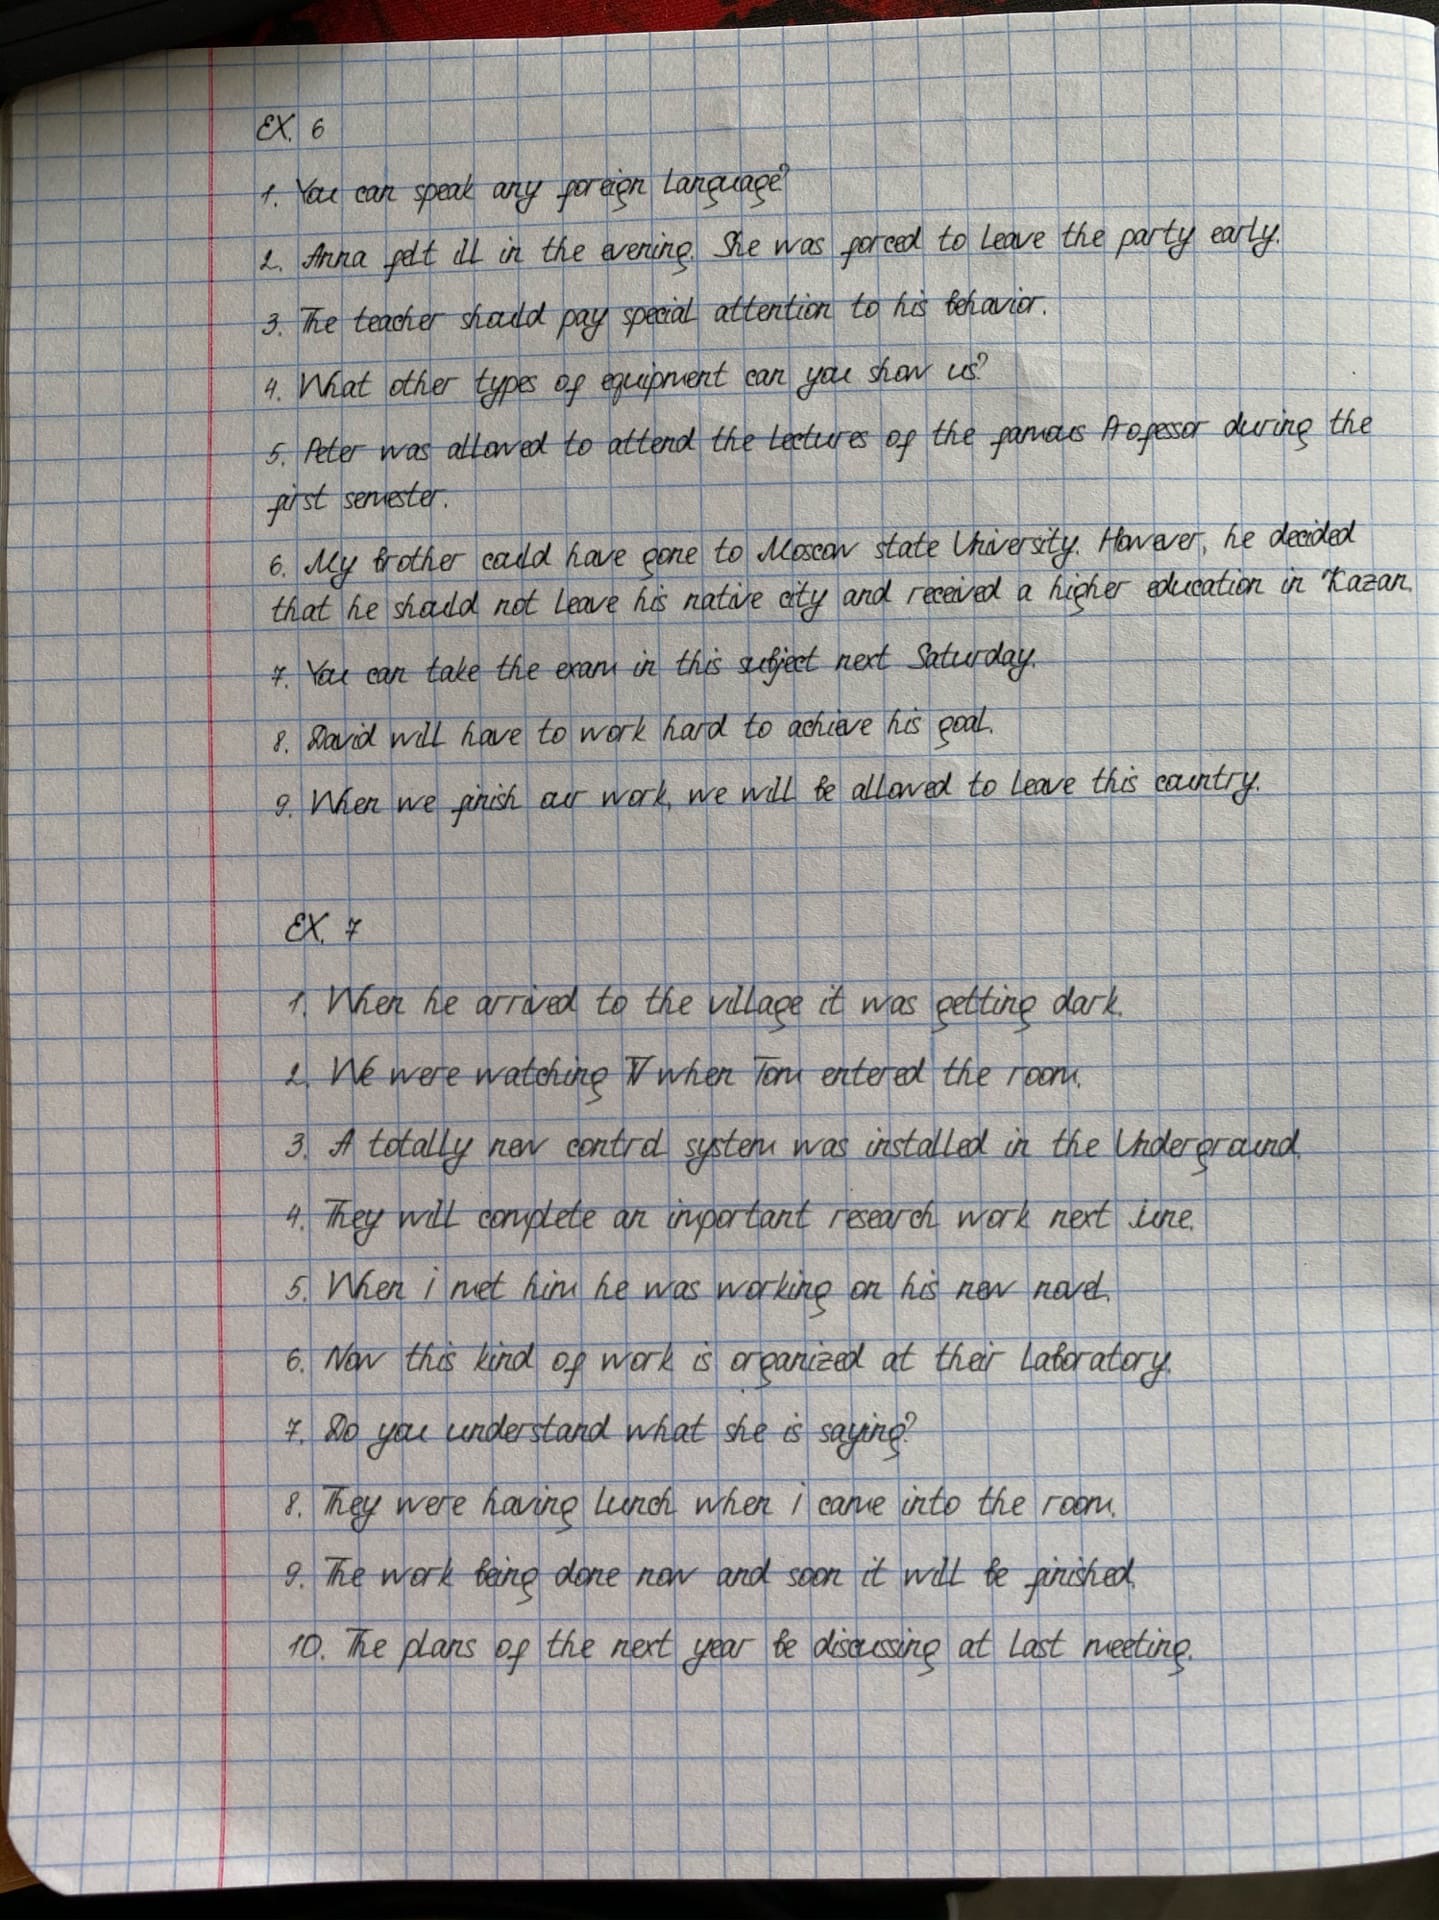 EX. 6
1. You can speak any foreign language?
2. Anna felt ill in the evening. She was forced to leave the party early.
3. The teacher should pay special attention to his behavior.
4. What other types of equipment can you show us?
5. Peter was allowed to attend the lectures of the famous Professor during the
first semester.
6. My brother could have gone to Moscow state University. However, he decided
that he should not leave his native city and received a higher education in Kazan.
7. You can take the exam in this subject next Saturday.
8. David will have to work hard to achieve his goal.
9. When we finish our work, we will be allowed to leave this country.
EX. 7
1. When he arrived to the village it was getting dark.
2. We were watching TV when Tom entered the room.
3. A totally new control system was installed in the Underground.
4. They will complete an important research work next june.
5. When i met him he was working on his new novel.
6. Now this kind of work is organized at their laboratory.
7. Do you understand what she is saying?
8. They were having lunch when i came into the room.
9. The work being done now and soon it will be finished.
10. The plans of the next year be discussing at last meeting.